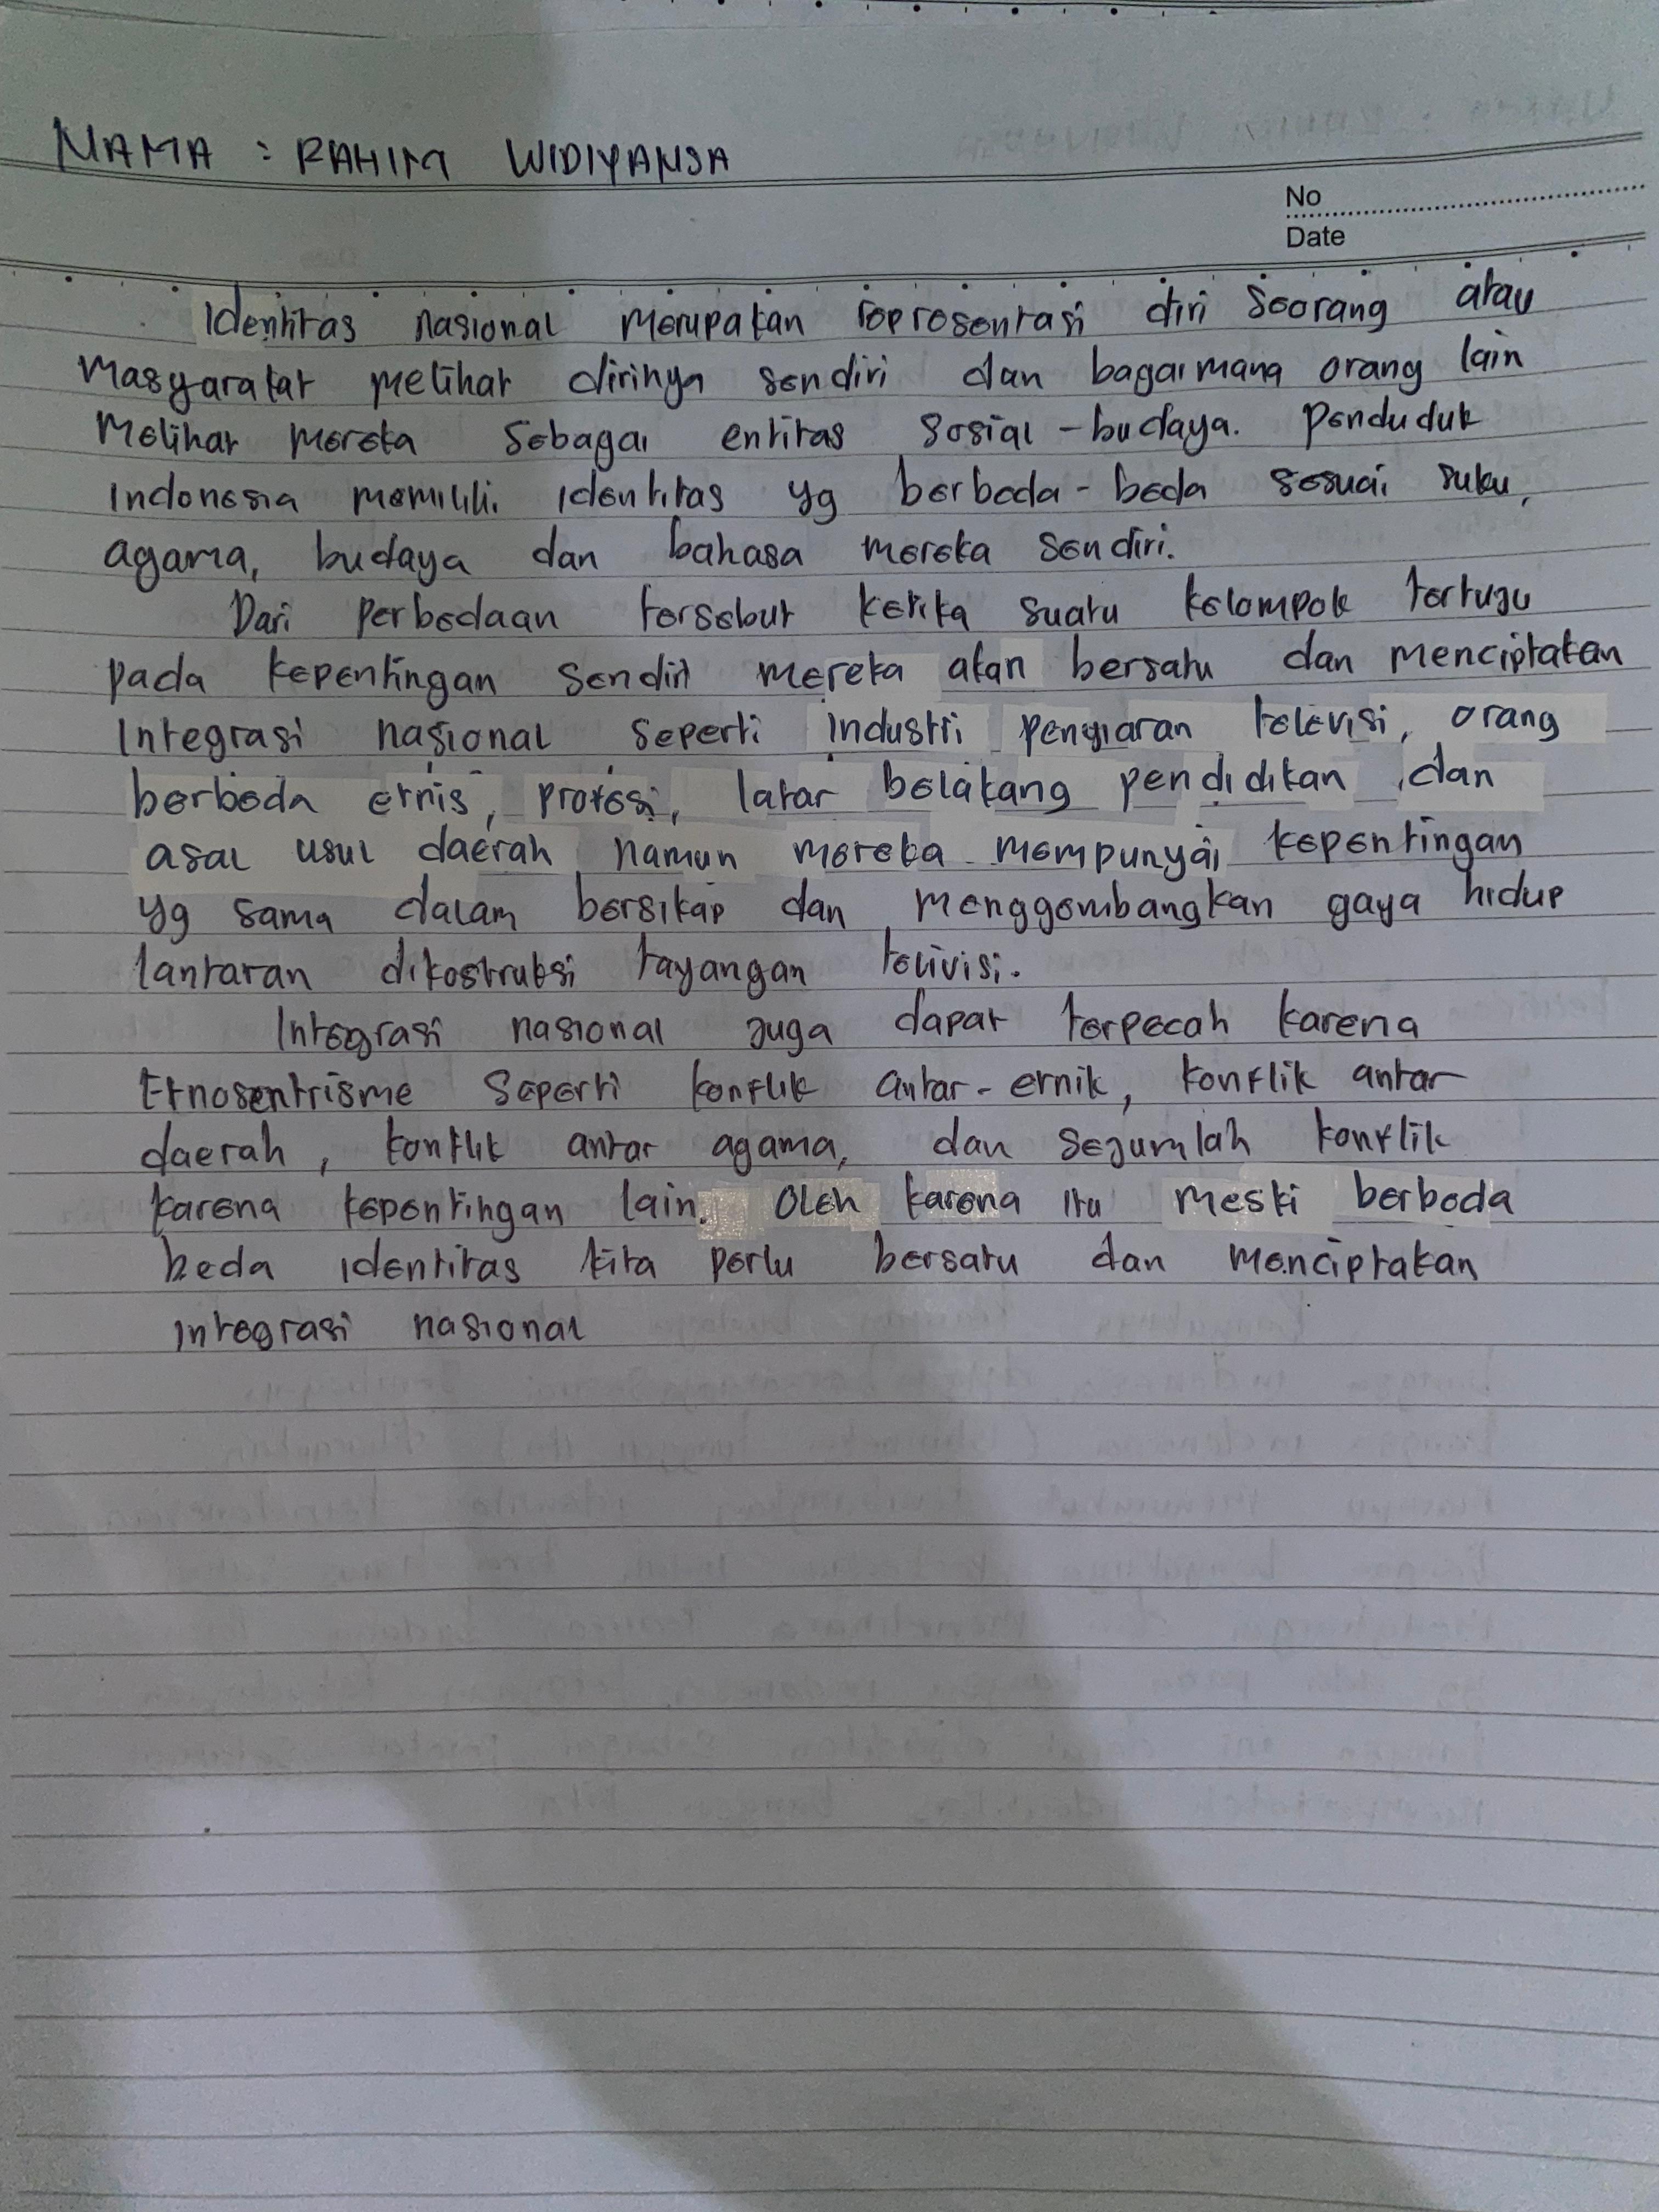 NAMA : RAHIM WIDIYANSA
No
Date
Identitas nasional merupakan representasi diri seorang atau
masyarakat melihat dirinya sendiri dan bagaimana orang lain
melihat mereka sebagai entitas sosial-budaya. Penduduk
Indonesia memiliki identitas yg berbeda-beda sesuai suku,
agama, budaya dan bahasa mereka sendiri.
Dari perbedaan tersebut ketika suatu kelompok tertuju
pada kepentingan sendiri mereka akan bersatu dan menciptakan
Integrasi nasional seperti industri penyiaran televisi, orang
berbeda etnis, profesi, latar belakang pendidikan, dan
asal usul daerah namun mereka mempunyai kepentingan
yg sama dalam bersikap dan menggembangkan gaya hidup
lantaran dikostruksi tayangan telivisi.
Integrasi nasional juga dapat terpecah karena
Etnosentrisme seperti konflik antar-etnik, konflik antar
daerah, konflik antar agama, dan sejumlah konflik
karena kepentingan lain. Oleh karena itu meski berbeda
beda identitas kita perlu bersatu dan menciptakan
integrasi nasional